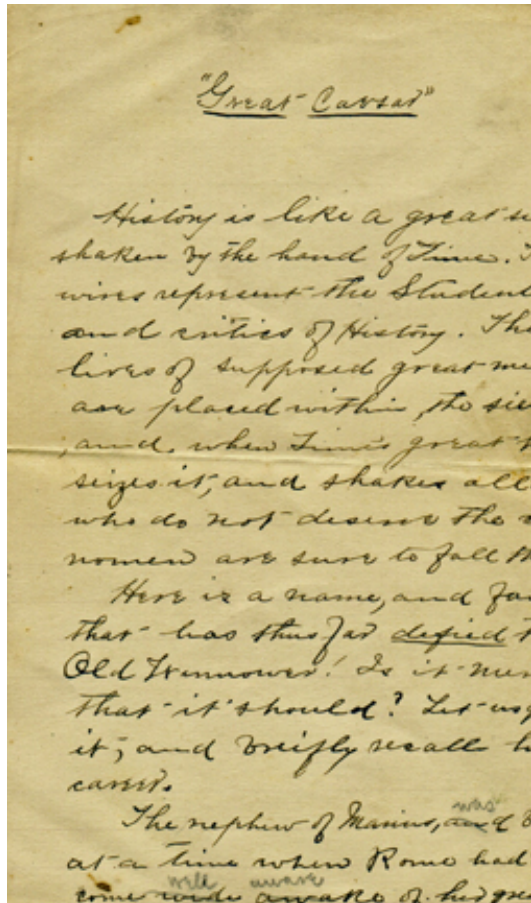 "Great Caesar"
History is like a great si
shaken by the hand of Time. T
wires represent the Student
and critics of History. The
lives of supposed great me
are placed within, the sie
, and, when Time's great h
seizes it, and shakes all
who do not deserve the
nomen are sure to fall th
Here is a name, and fa
that has thus far defied t
Old Winnower! Is it
that it should? Let us
it, and breifly recall h
career.
was
The nephew of Marius, and
at a time when Rome had
well aware
come wide awake of her gre